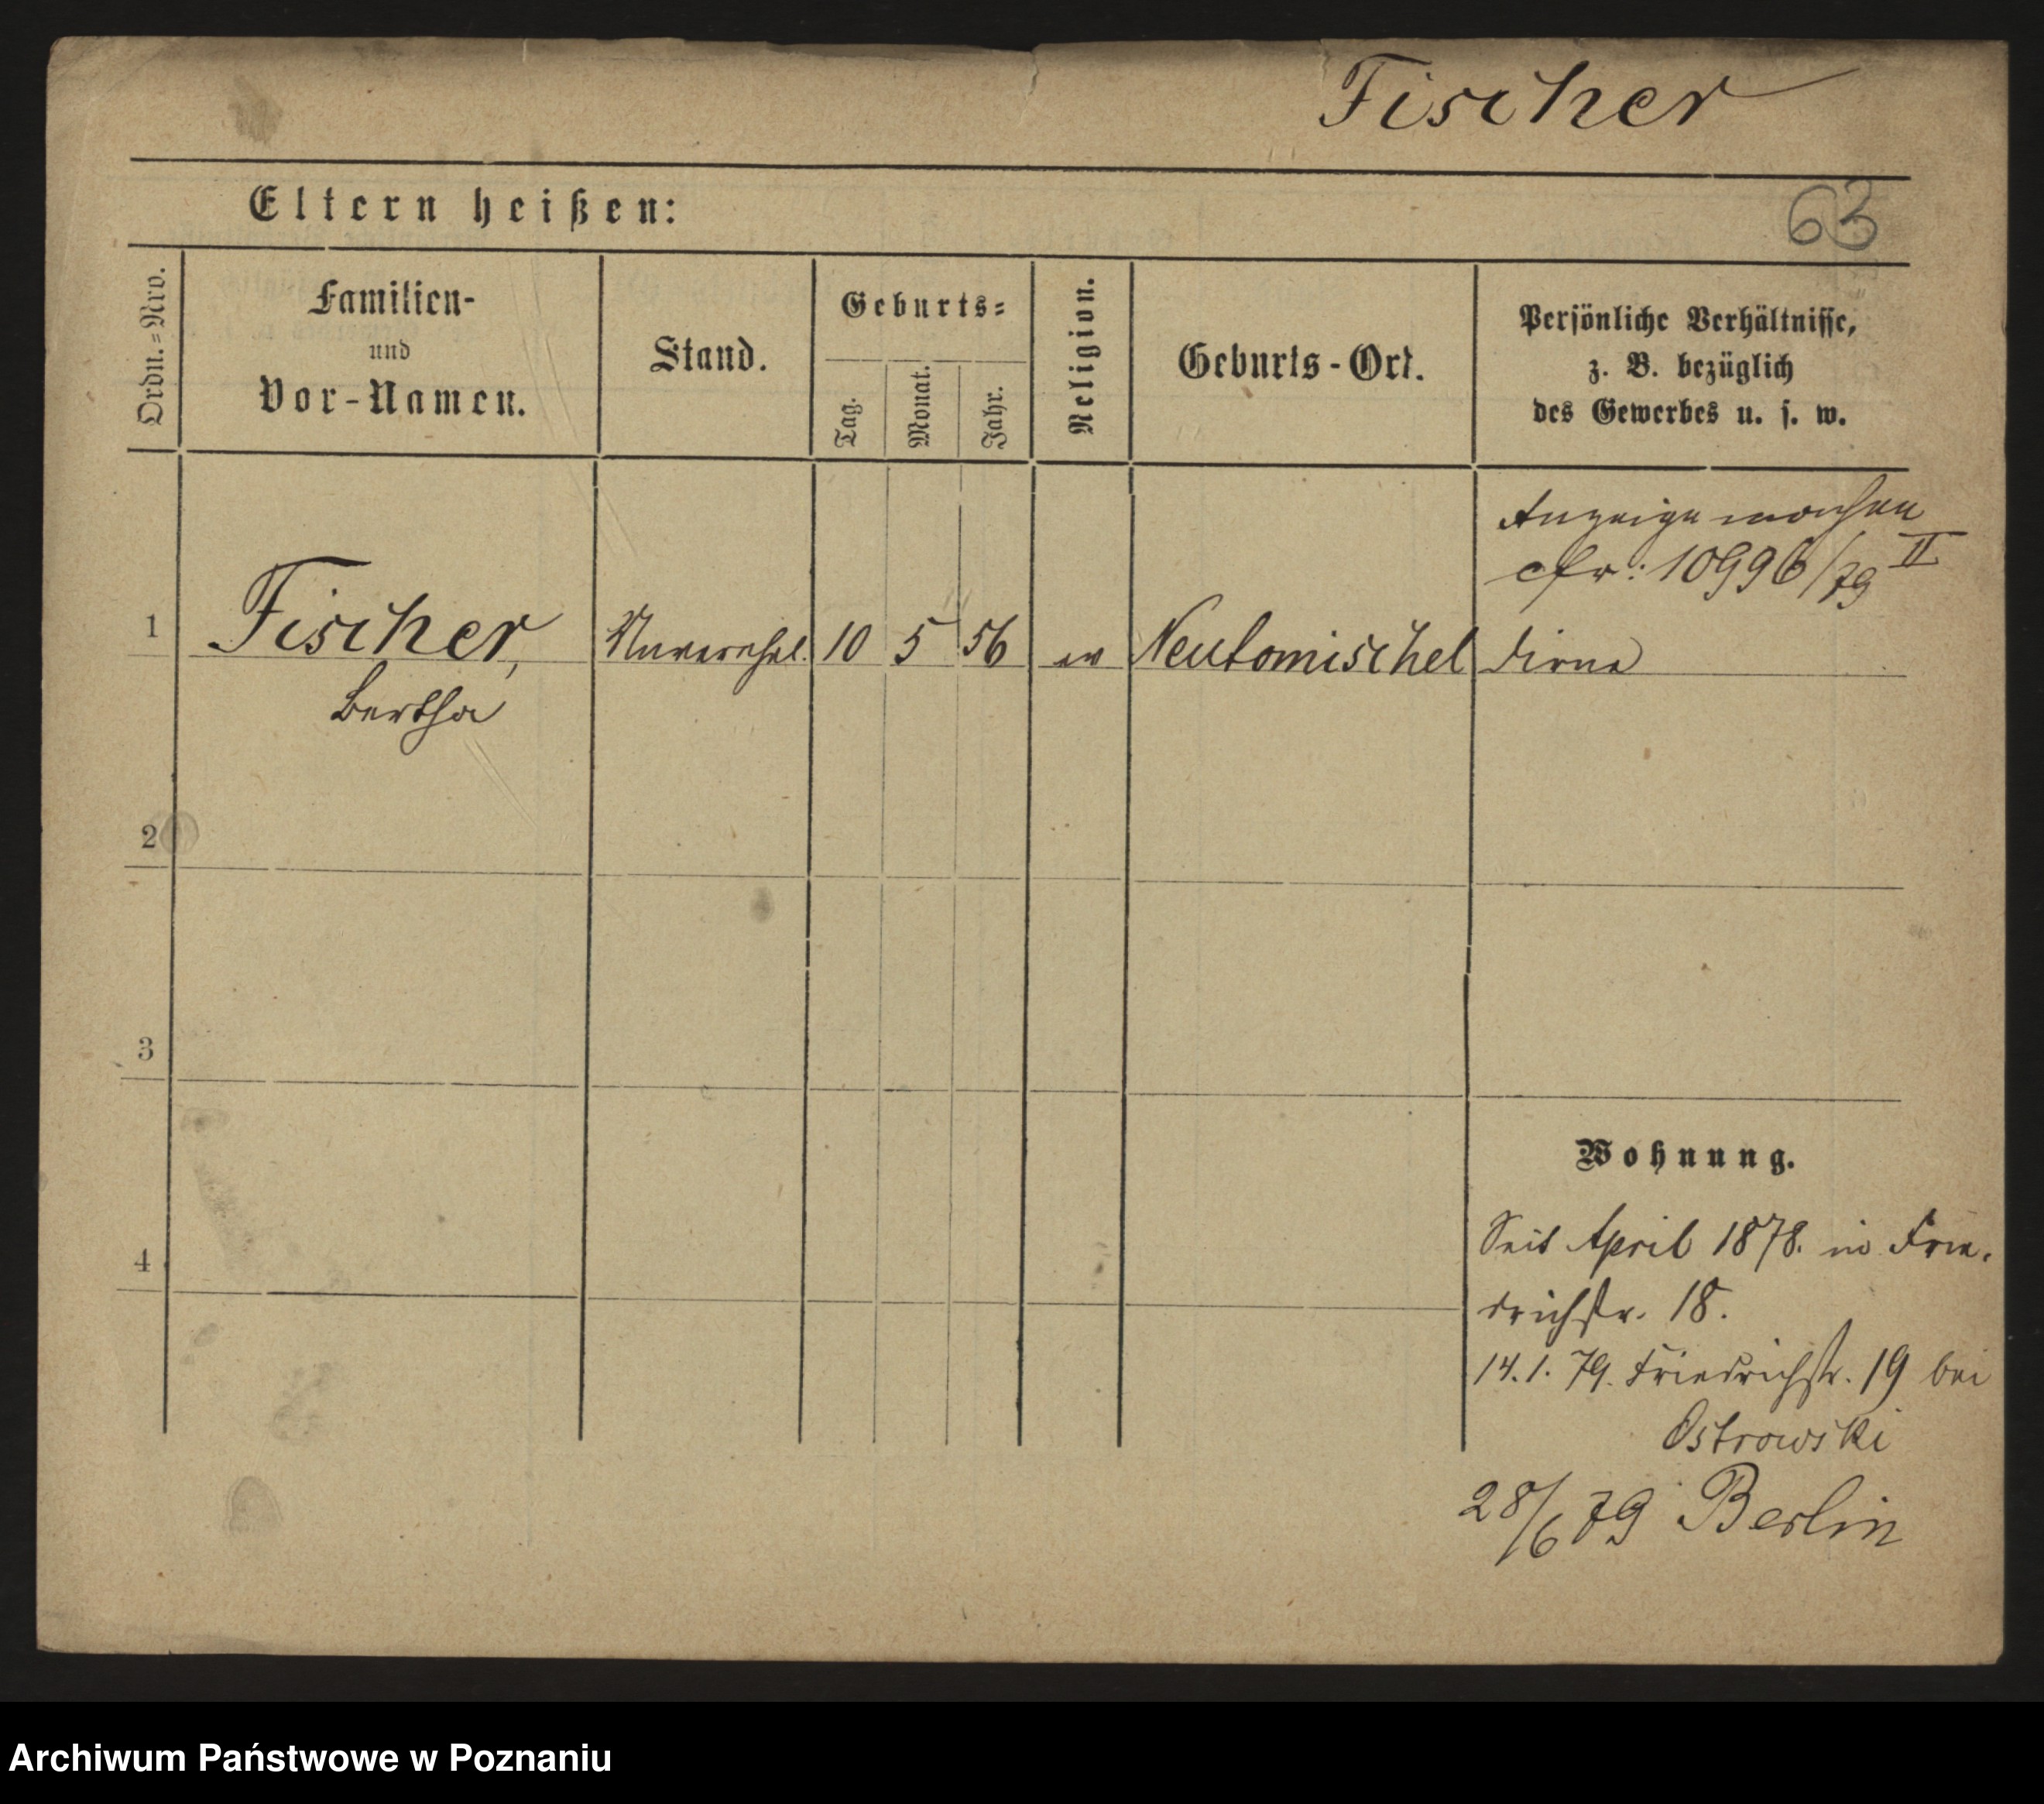 Fischer
63
Eltern heißen:
Ordn.=Nro.
Familien-
und
Vor-Namen.
Stand.
Geburts=
Tag.
Monat.
Jahr.
Religion.
Geburts-Ort.
Persönliche Verhältnisse,
z. B. bezüglich
des Gewerbes u. s. w.
Anzeige machen
cfr: 10996/79 II
1 Fischer, Unverehel. 10 5 56 ev Neutomischel Dirne
Bertha
2
3
4
Wohnung.
Seit April 1878. in Frie-
drichstr. 18.
14.1.79. Friedrichstr. 19 bei
Ostrowski
28/6 79 Berlin
Archiwum Państwowe w Poznaniu